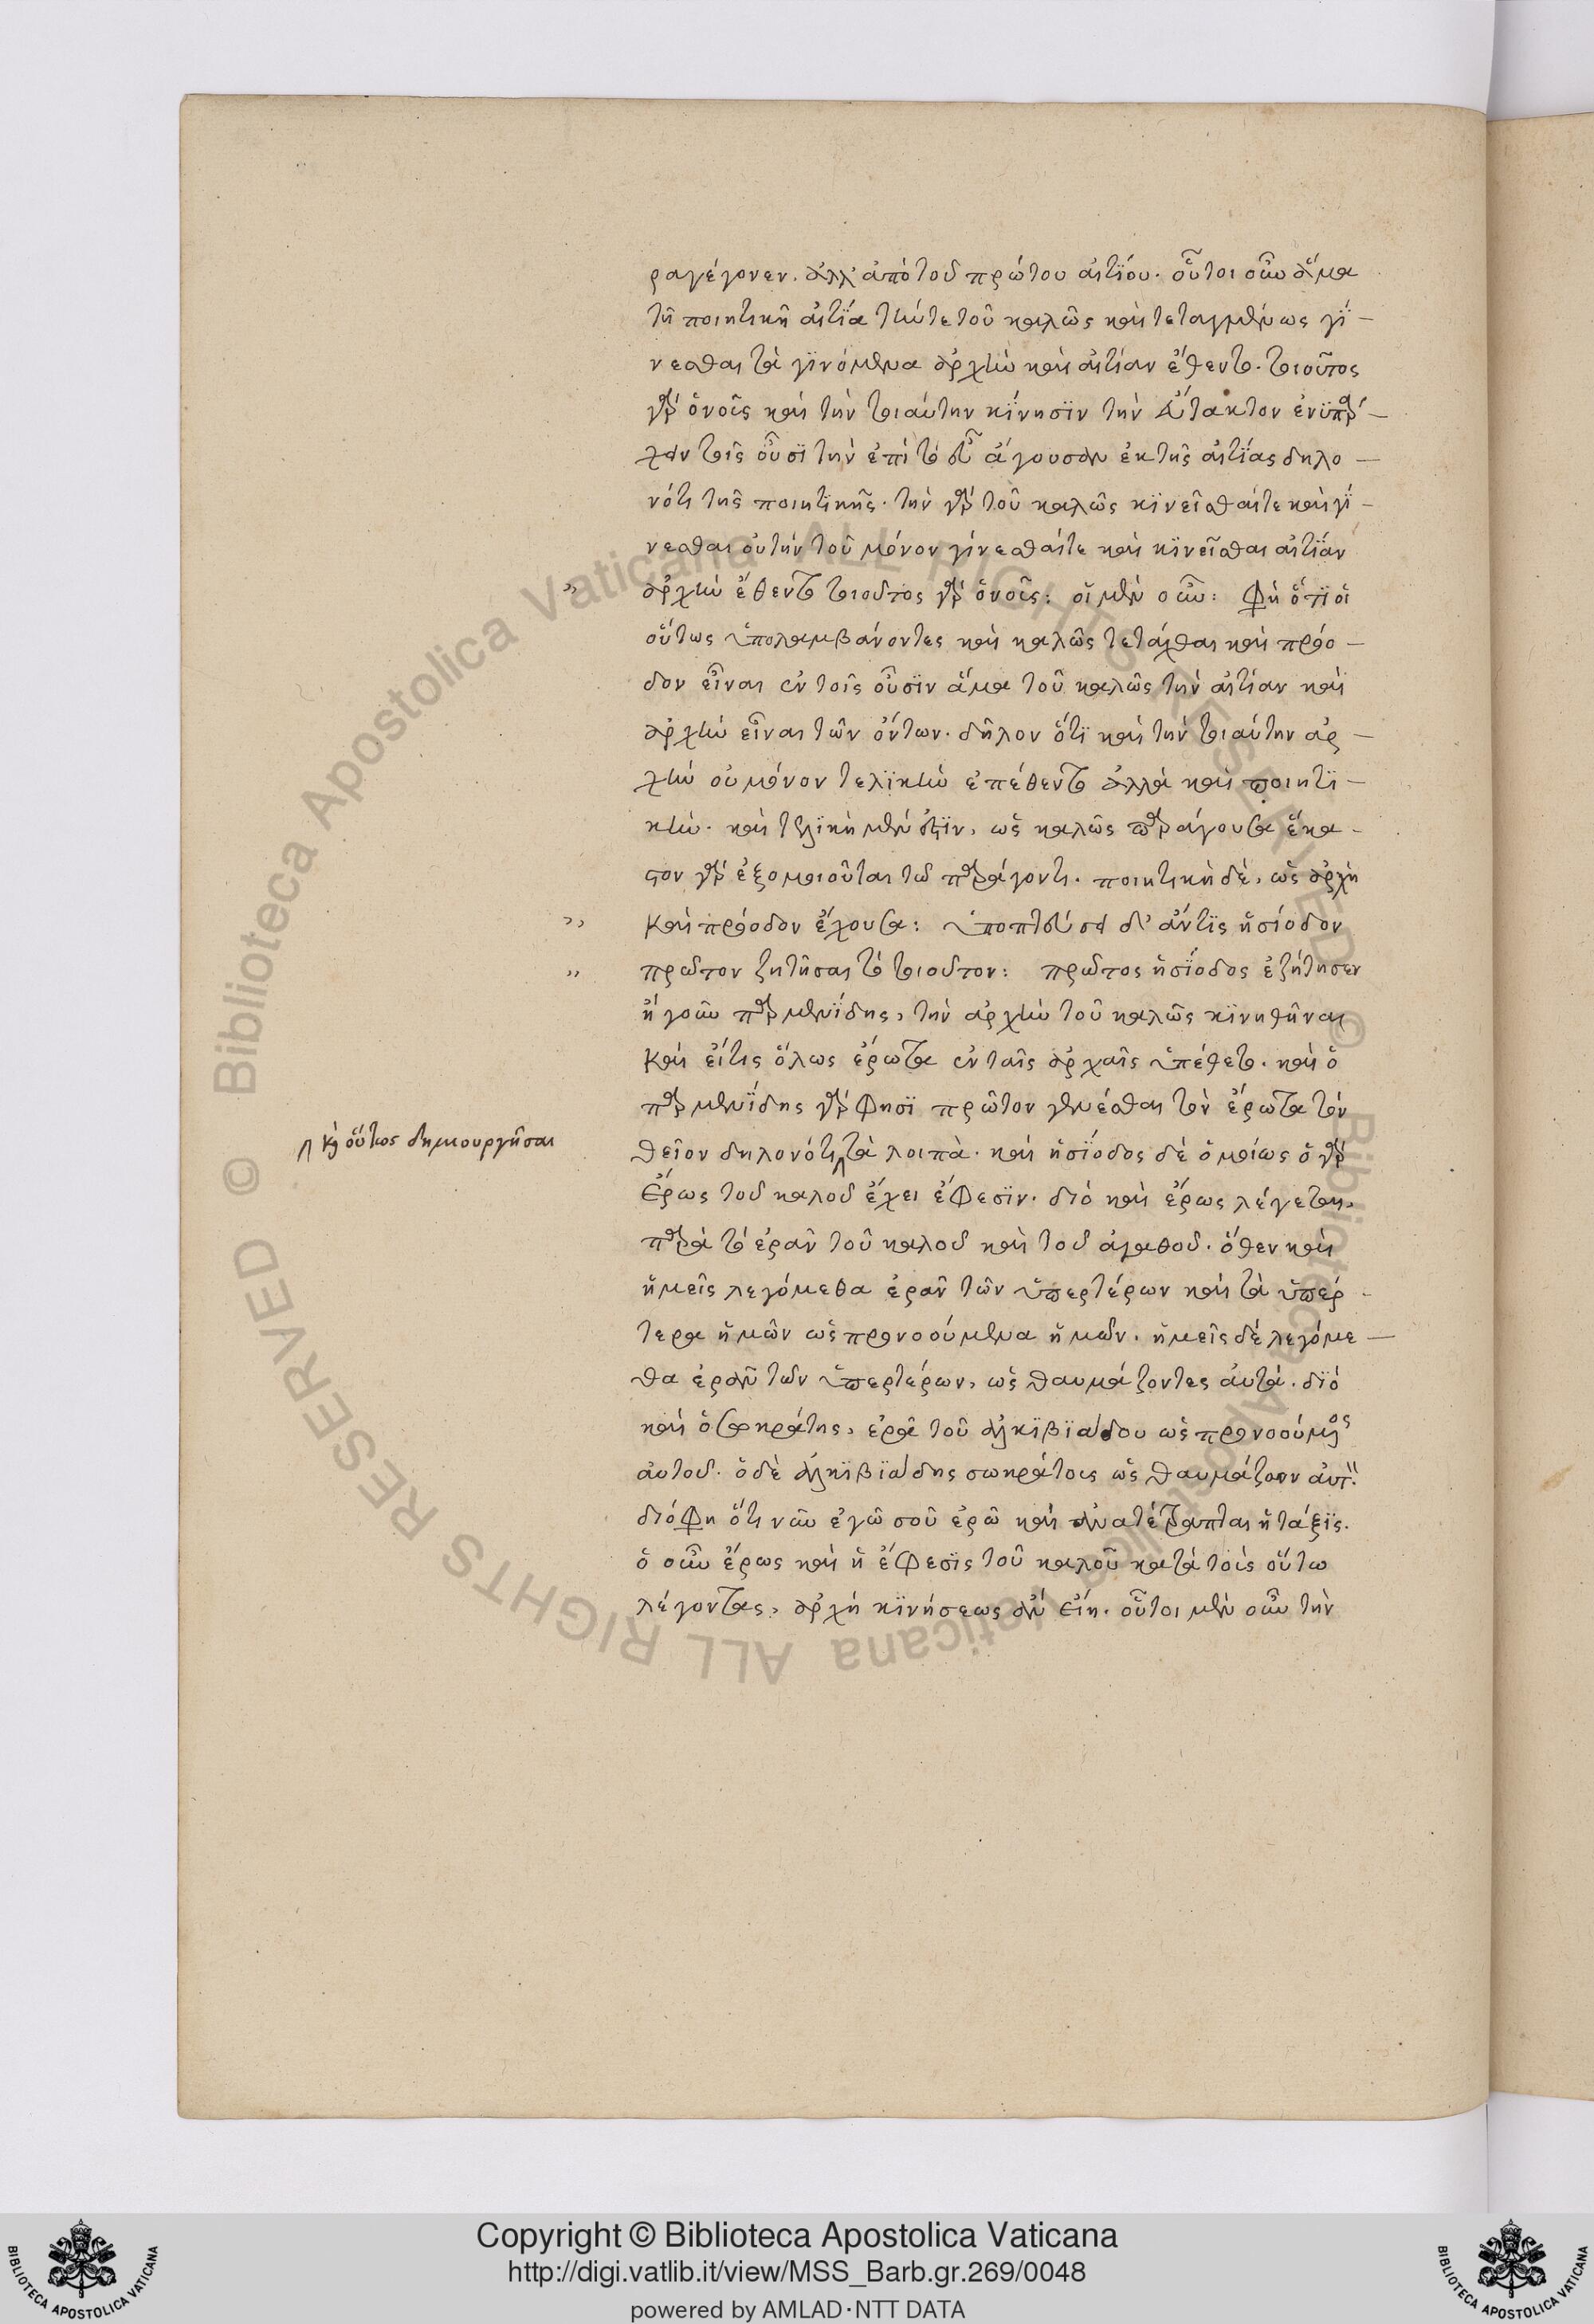 ραγέγονεν. ἀλλ' ἀπὸ τοῦ πρώτου αἰτίου. οὗτοι οὖν ἅμα
τῇ ποιητικῇ αἰτίᾳ τήν τε τοῦ καλῶς καὶ τεταγμένως γί-
νεσθαι τὰ γινόμενα ἀρχὴν καὶ αἰτίαν ἔθεντο. τοιοῦτος
γὰρ ὁ νοῦς καὶ τὴν τοιαύτην κίνησιν τὴν εὔτακτον ἐνυπάρ-
χειν τοῖς οὖσι τὴν ἐπὶ τὸ εὖ ἄγουσαν ἐκ τῆς αἰτίας δηλο-
νότι τῆς ποιητικῆς. τὴν γὰρ τοῦ καλῶς κινεῖσθαί τε καὶ γί-
νεσθαι οὐ τὴν τοῦ μόνον γίνεσθαί τε καὶ κινεῖσθαι αἰτίαν
" ἀρχὴν ἔθεντο τοιοῦτος γὰρ ὁ νοῦς: οἱ μὲν οὖν: Φη ὅτι οἱ
οὕτως ὑπολαμβάνοντες καὶ καλῶς τετάχθαι καὶ πρόο-
δον εἶναι ἐν τοῖς οὖσιν ἅμα τοῦ καλῶς τὴν αἰτίαν καὶ
ἀρχὴν εἶναι τῶν ὄντων. δῆλον ὅτι καὶ τὴν τοιαύτην ἀρ-
χὴν οὐ μόνον τελικὴν ἐπέθεντο ἀλλὰ καὶ ποιητι-
κήν. καὶ τελικὴ μέν ἐστιν, ὡς καλῶς παράγουσα ἕκα-
στον γὰρ ἐξομοιοῦται τῷ παράγοντι. ποιητικὴ δὲ, ὡς ἀρχὴ
" καὶ πρόοδον ἔχουσα: ὑποπτεύσει δ' ἄν τις ἡσίοδον
" πρῶτον ζητῆσαι τὸ τοιοῦτον: πρῶτος ἡσίοδος ἐζήτησεν
ἤγουν παρμενίδης, τὴν ἀρχὴν τοῦ καλῶς κινηθῆναι
καὶ εἴ τις ὅλως ἔρωτα ἐν ταῖς ἀρχαῖς ὑπέθετο. καὶ ὁ
παρμενίδης γάρ φησι πρῶτον γενέσθαι τὸν ἔρωτα τὸν
θεῖον δηλονότι τὰ λοιπά. καὶ ἡσίοδος δὲ ὁμοίως ὁ γὰρ
καὶ οὕτως δημιουργῆσαι
ἔρως τοῦ καλοῦ ἔχει ἔφεσιν. διὸ καὶ ἔρως λέγεται,
παρὰ τὸ ἐρᾶν τοῦ καλοῦ καὶ τοῦ ἀγαθοῦ. ὅθεν καὶ
ἡμεῖς λεγόμεθα ἐρᾶν τῶν ὑπερτέρων καὶ τὰ ὑπέρ-
τερα ἡμῶν ὡς προνοούμενα ἡμῶν. ἡμεῖς δὲ λεγόμε-
θα ἐρᾶν τῶν ὑπερτέρων, ὡς θαυμάζοντες αὐτά. διὸ
καὶ ὁ σωκράτης, ἐρᾷ τοῦ ἀλκιβιάδου ὡς προνοούμενος
αὐτοῦ. ὁ δὲ ἀλκιβιάδης σωκράτους ὡς θαυμάζων αὐτ.
διό φη ὅτι νῦν ἐγὼ σοῦ ἐρῶ καὶ ἀνατέτραπται ἡ τάξις.
ὁ οὖν ἔρως καὶ ἡ ἔφεσις τοῦ καλοῦ κατὰ τοὺς οὕτω
λέγοντας, ἀρχὴ κινήσεως ἂν εἴη. οὗτοι μὲν οὖν τὴν
© Biblioteca Apostolica Vaticana ALL RIGHTS RESERVED © Biblioteca Apostolica Vaticana ALL RIGHTS RESERVED
BIBLIOTECA APOSTOLICA VATICANA
Copyright © Biblioteca Apostolica Vaticana
http://digi.vatlib.it/view/MSS_Barb.gr.269/0048
powered by AMLAD·NTT DATA
BIBLIOTECA APOSTOLICA VATICANA